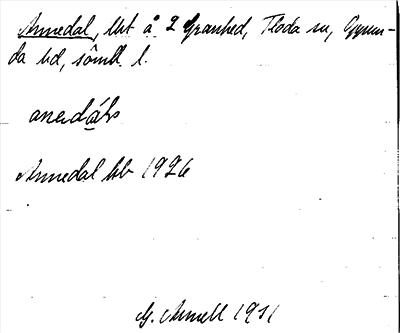 Annedal, lht å 2 Granhed, Floda sn, Oppun-
da hd, sömll. l.
anedáls
Annedal hb 1926
G. Annell 1911